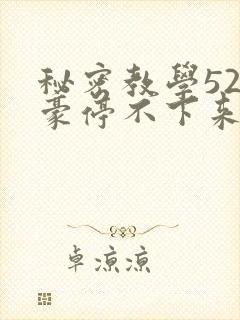 秘密教學52
豪停不下来
卓凉凉